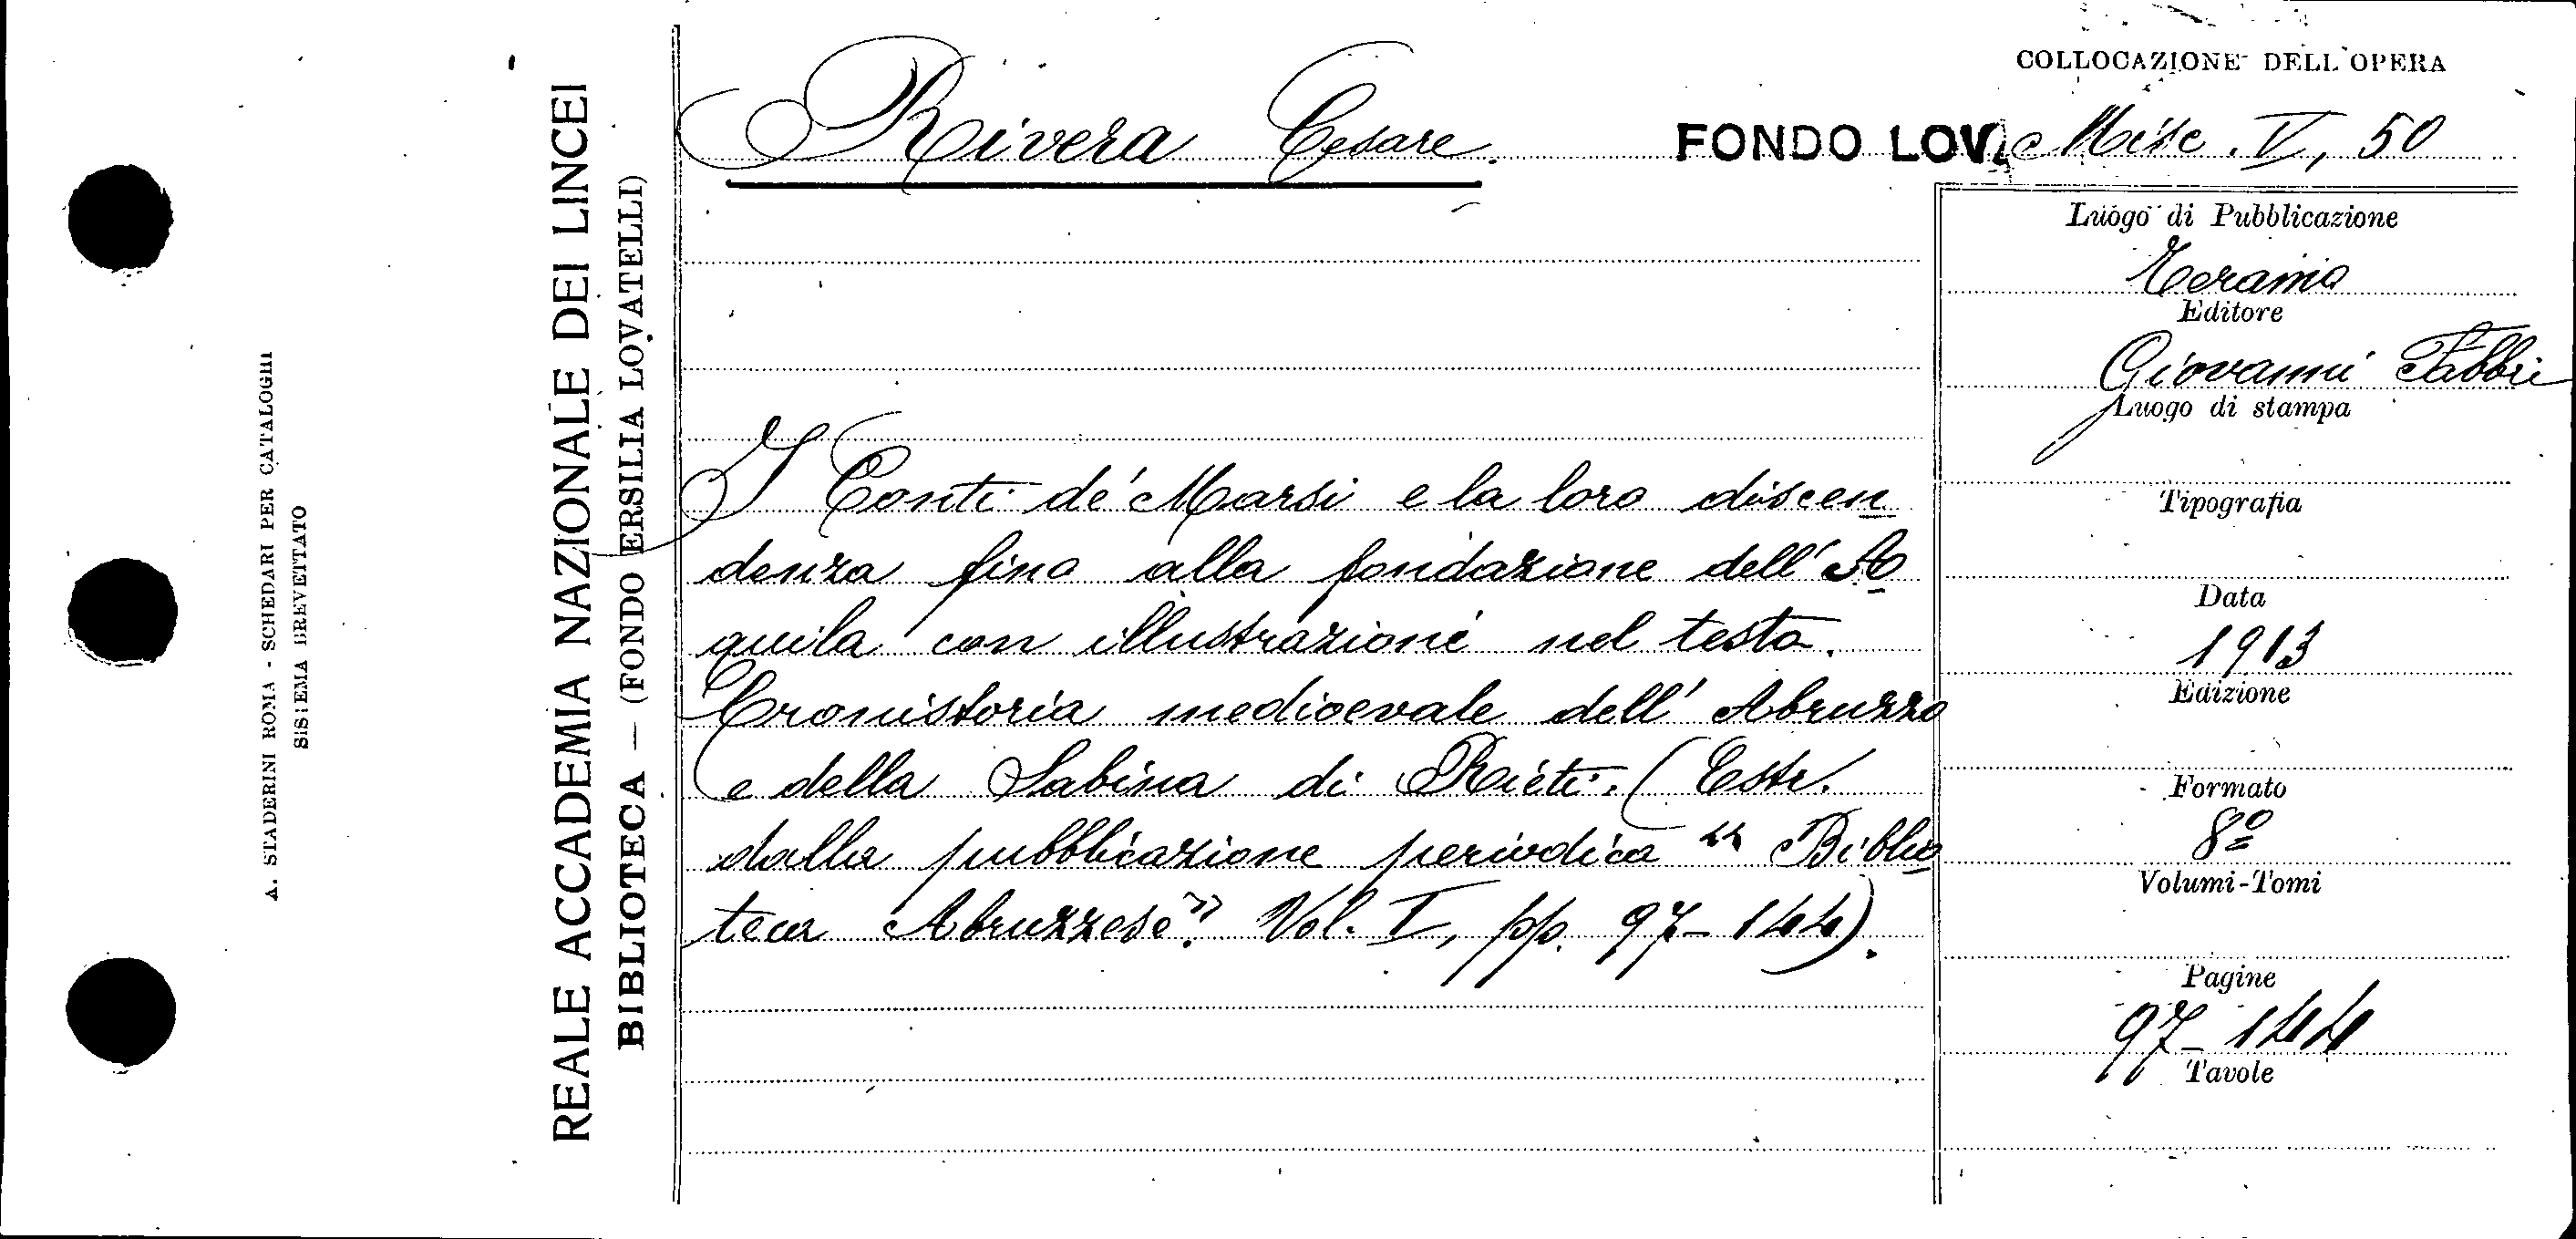 A. STADERINI ROMA - SCHEDARI PER CATALOGHI
SISTEMA BREVETTATO
REALE ACCADEMIA NAZIONALE DEI LINCEI
BIBLIOTECA — (FONDO ERSILIA LOVATELLI)
COLLOCAZIONE DELL'OPERA
Rivera Cesare.
FONDO LOV. Misc. V, 50
I Conti de' Marsi e la loro discen
denza fino alla fondazione dell'A
quila con illustrazioni nel testo.
Cronistoria medioevale dell'Abruzzo
e della Sabina di Rieti. (Estr.
dalla pubblicazione periodica "Biblio
teca Abruzzese". Vol. I, pp. 97-144).
Luogo di Pubblicazione
Teramo
Editore
Giovanni Fabbri
Luogo di stampa
Tipografia
Data
1913
Edizione
Formato
8º
Volumi-Tomi
Pagine
97-144
Tavole